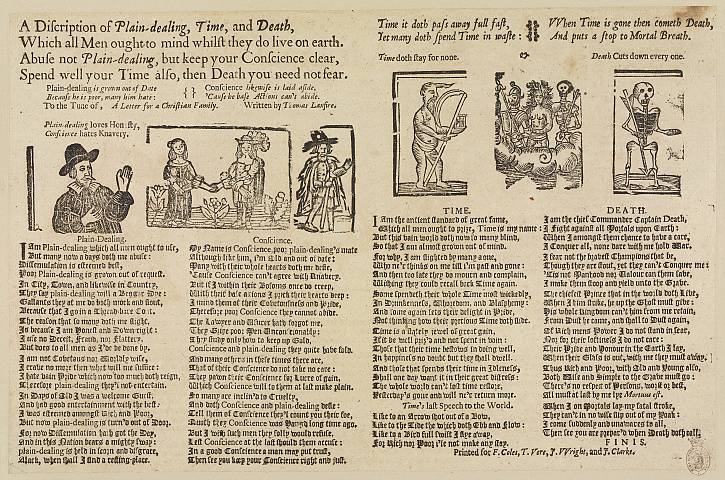 A Discription of Plain-dealing, Time, and Death,
Which all Men ought to mind whilst they do live on earth.
Abuse not Plain-dealing, but keep your Conscience clear,
Spend well your Time also, then Death you need not fear.
Plain-dealing is grown out of Date
Because he is poor, many him hate:
Conscience likewise is laid aside,
'Cause he base Actions can't abide.
To the Tune of, A Letter for a Christian Family. Written by Thomas Lanfire.
Plain-dealing loves Honesty,
Conscience hates Knavery.
Plain-Dealing.
I Am Plain-dealing which all men ought to use,
But many now a days doth me abuse:
Dissimulation is esteemed best,
Poor Plain-dealing is grown out of request.
In City, Town, and likewise in Country,
They say plain-dealing will a Beggar dye:
Gallants they at me do both mock and flout,
Because that I go in a Thread-bare Coat.
The reason that so many doth me slight,
Is because I am Honest and Down-right:
I use no Deceit, Fraud, nor Flattery,
But does to all men as I'de be done by.
I am not Covetous nor Worldly wise,
I crave no more then what will me suffice:
I hate vain Pride which now too much doth reign,
Therefore plain-dealing they'l not entertain.
In Days of Old I was a welcome Guest,
And had good entertainment with the best:
I was esteemed amongst Rich and Poor,
But now plain-dealing is turn'd out of Door.
For now Dissimulation hath got the Day,
And in this Nation bears a mighty sway:
plain-dealing is held in scorn and disgrace,
Alack, when shall I find a resting-place.
Conscience.
My Name is Conscience, poor plain-dealing's mate
Although like him, I'm Old and out of date:
Many with their whole hearts doth me hate,
'Cause Conscience can't agree with Knavery.
But if I within their Bosoms once do creep,
With their base actions I prick their hearts deep:
I mind them of their Covetousness and Pride,
Therefore poor Conscience they cannot abide.
The Lawyer and Usurer hath forgot me,
They Gripe poor Men Unconscionably:
They study only how to keep up Gold,
Conscience and plain-dealing they quite have sold.
And many others in their times there are,
That of their Conscience do not take no care:
They pawn their Conscience for Lucre of gain,
Which Conscience will to them at last make plain.
So many are inclin'd to Cruelty,
And doth Conscience and plain-dealing defie:
Tell them of Conscience they'l count you their foe,
Quoth they Conscience was Hang'd long time ago.
But I wish such men they fully would refuse,
Lest Conscience at the last should them accuse:
In a good Conscience a man may put trust,
Then see you keep your Conscience right and just.
Time it doth pass away full fast,
Yet many doth spend Time in waste:
When Time is gone then cometh Death,
And puts a stop to Mortal Breath.
Time doth stay for none.
Death Cuts down every one.
TIME.
I Am the antient standard of great fame,
Which all men ought to prize, Time is my name:
But this vain world doth now so many blind,
So that I am almost grown out of mind.
For why, I am slighted by many a one,
Who ne'r think's on me till I'm past and gone:
And then too late they do mourn and complain,
Wishing they could recall back Time again.
Some spendeth their whole Time most wickedly,
In Drunkenness, Whoredom, and Blasphemy:
And some again sets their delight in Pride,
Not thinking how their pretious Time doth slide.
Time is a Jewel of great gain,
If it be well priz'd and not spent in vain:
Those that their time bestows in doing well,
In happiness no doubt but they shall dwell.
And those that spends their time in Idleness,
Shall one day want it in their great distress:
The whole world can't lost time restore,
Yesterday's gone and will ne'r return more.
Time's last Speech to the World.
Like to an Arrow shot out of a Bow,
Like to the Tide which doth Ebb and Flow:
Like to a Bird full swift I flye away,
For Rich nor Poor I'le not make any stay.
DEATH.
I am the chief Commander Captain Death,
I Fight against all Mortals upon Earth:
When I amongst them chance to have a care,
I Conquer all, none dare with me hold War.
I fear not the bravest Champions that be,
Though they are stout, yet they can't Conquer me:
'Tis not Manhood nor Valour can them save,
I make them stoop and yield unto the Grave.
The chiefest Prince that in the world doth Live,
When I him strike, he up the Ghost must give:
His whole Kingdom can't him from me retain,
From Dust he came, and shall to Dust again,
Of Rich mens Power I do not stand in fear,
Nor for their losses I do not care:
Their Pride and Honour in the Earth I lay,
When their Glass is out, with me they must away.
Thus Rich and Poor, with Old and Young also,
Both Wise and Simple to the Grave must go:
There's no respect of Persons, worst or best,
All must at last by me lye Mortuus est.
When I on Mortals lay my fatal stroke,
They can't in no wise slip out of my Yoak:
I come suddenly and unawares to all,
Then see you are prepar'd when Death doth call.
FINIS.
Printed for F. Coles, T. Vere, J. Wright, and J. Clarke.